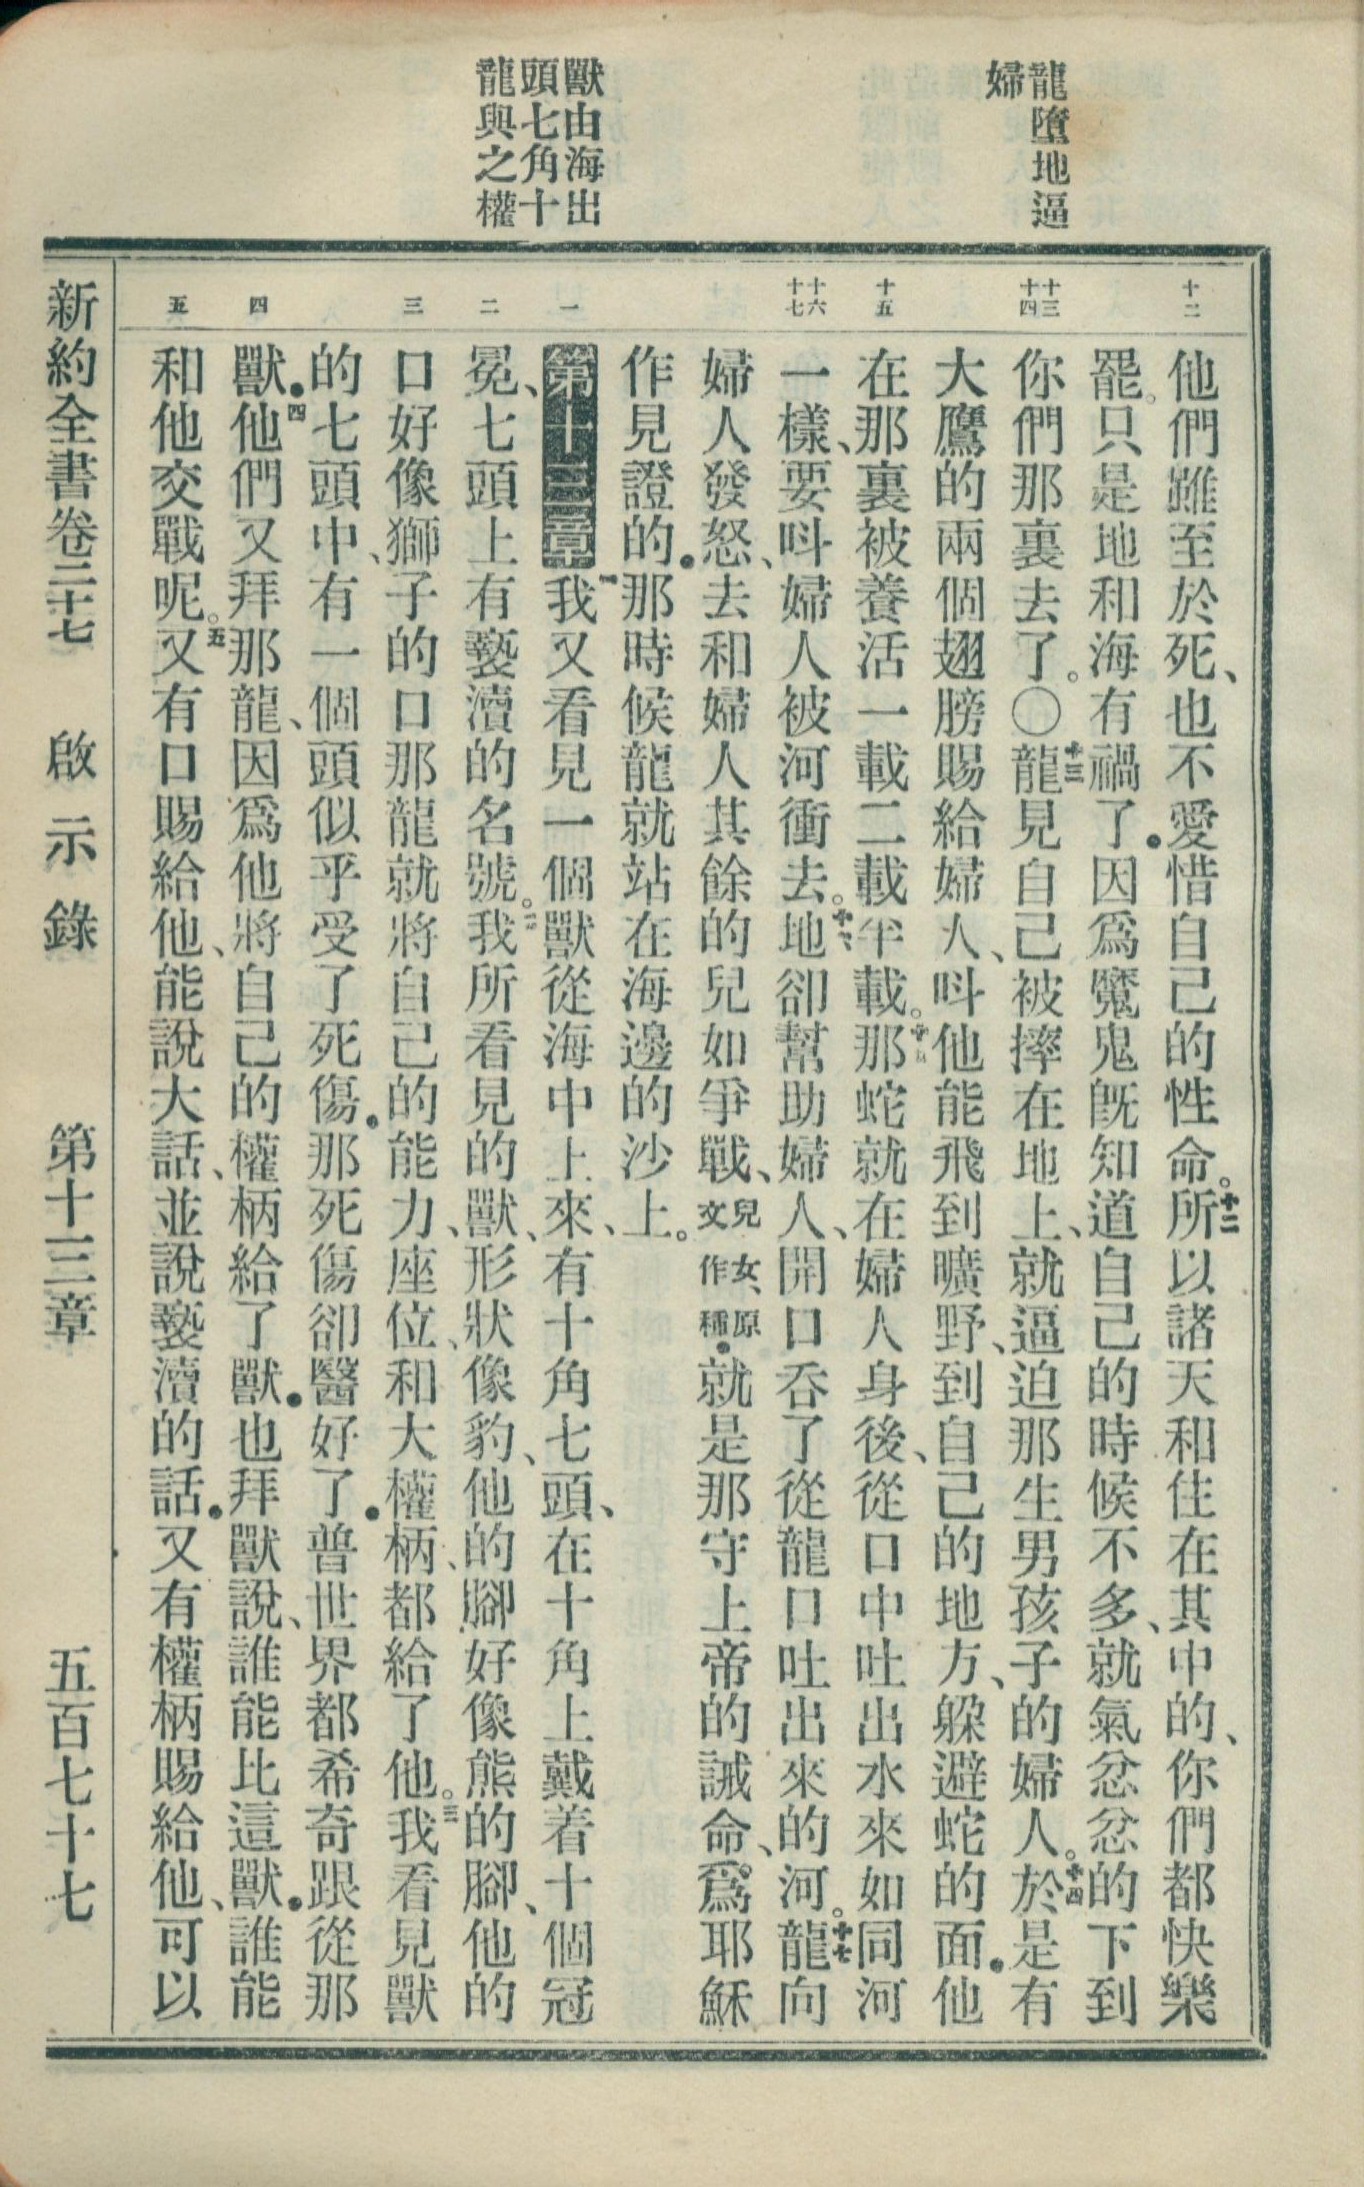 龍墮地逼
婦
獸由海出
頭七角十
龍與之權
十二
十三
十四
十五
十六
十七
一
二
三
四
五
他們雖至於死、也不愛惜自己的性命。十二所以諸天和住在其中的、你們都快樂
罷。只是地和海有禍了．因爲魔鬼旣知道自己的時候不多、就氣忿忿的下到
你們那裏去了。〇十三龍見自己被摔在地上、就逼迫那生男孩子的婦人。十四於是有
大鷹的兩個翅膀賜給婦人、呌他能飛到曠野、到自己的地方、躱避蛇的面．他
在那裏被養活一載二載半載。十五那蛇就在婦人身後、從口中吐出水來如同河
一樣、要呌婦人被河衝去。十六地卻幫助婦人、開口吞了從龍口吐出來的河。十七龍向
婦人發怒、去和婦人其餘的兒如爭戰、兒女、原文作種．就是那守上帝的誡命、爲耶穌
作見證的．那時候龍就站在海邊的沙上。
第十三章一我又看見一個獸從海中上來、有十角七頭、在十角上戴着十個冠
冕、七頭上有褻瀆的名號。二我所看見的獸、形狀像豹、他的腳好像熊的腳、他的
口好像獅子的口那龍就將自己的能力、座位、和大權柄、都給了他。三我看見獸
的七頭中、有一個頭似乎受了死傷．那死傷卻醫好了．普世界都希奇跟從那
獸．四他們又拜那龍、因爲他將自己的權柄給了獸．也拜獸說、誰能比這獸．誰能
和他交戰呢。五又有口賜給他、能說大話、並說褻瀆的話．又有權柄賜給他、可以
新約全書卷二十七　啟示錄　第十三章　五百七十七